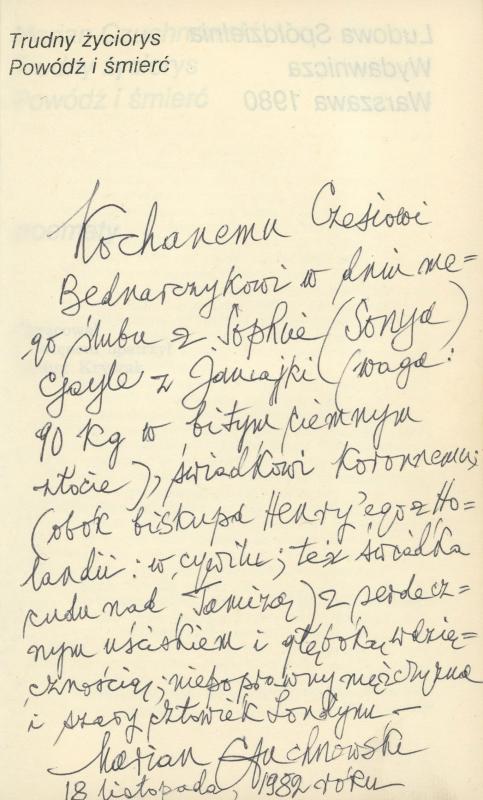 Trudny życiorys
Powódź i śmierć
Ludowa Spółdzielnia
Wydawnicza
Warszawa 1980
Kochanemu Czesiowi
Bednarczykowi w dniu me=
go ślubu z Sophie (Sonya)
Gayle z Jamajki (waga:
90 kg w bitym ciemnym
złocie), świadkowi koronnemu;
(obok biskupa Henry'ego z Ho=
landii: w cywilu; też świadka
cudu nad Tamizą) z serdecz=
nym uściskiem i głęboką wdzię=
cznością; niepoprawny mężczyzna
i szary człowiek Londynu –
Marian Czuchnowski
18 listopada, 1982 roku